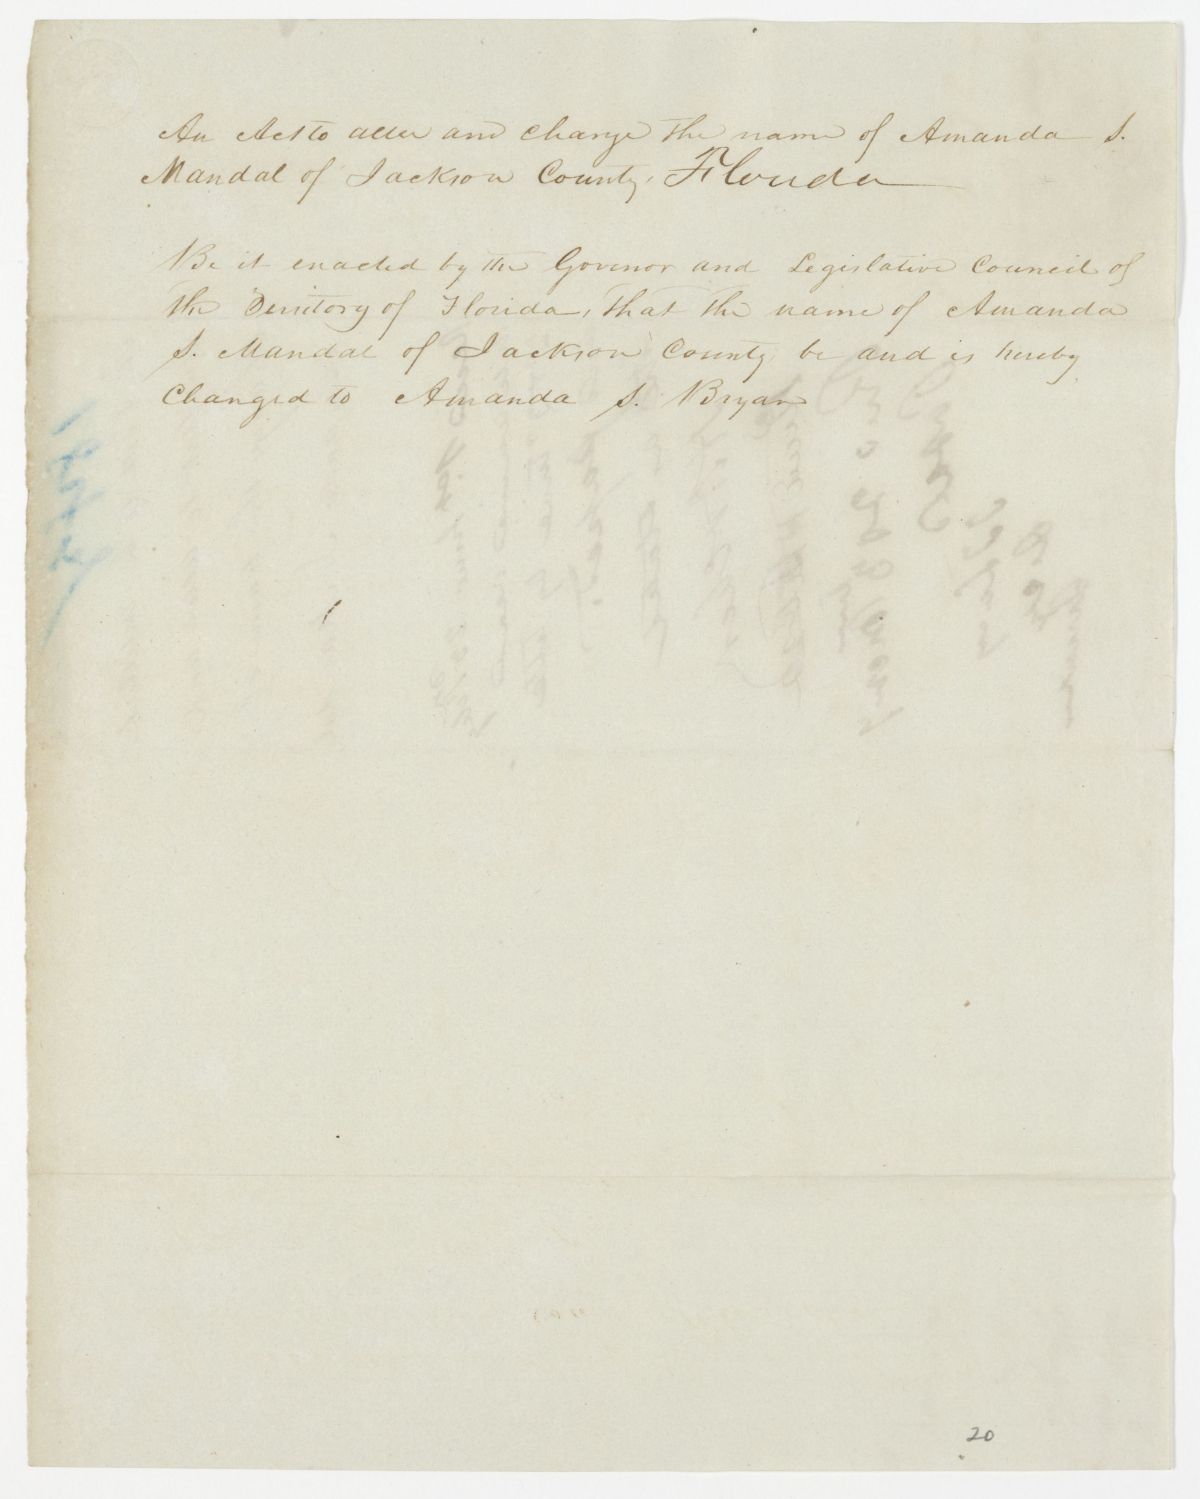 An Act to alter and change the name of Amanda S.
Mandal of Jackson County, Florida
Be it enacted by the Govenor and Legislative Council of
the Territory of Florida, That the name of Amanda
S. Mandal of Jackson County, be and is hereby
Changed to Amanda S. Bryan
20